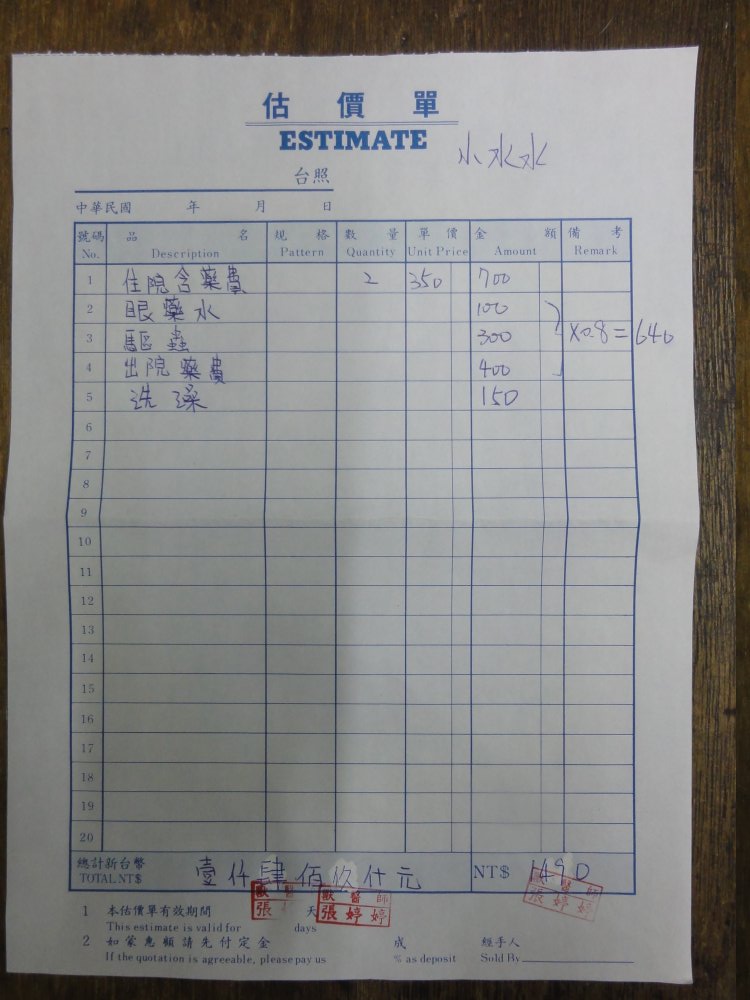 估價單
ESTIMATE
小水水
台照
中華民國 年 月 日
號碼 品名 規格 數量 單價 金額 備考
No. Description Pattern Quantity Unit Price Amount Remark
1 住院含藥費 2 350 700
2 眼藥水 100
3 驅蟲 300 X0.8=640
4 出院藥費 400
5 洗澡 150
6
7
8
9
10
11
12
13
14
15
16
17
18
19
20
總計新台幣 壹仟肆佰玖什元 NT$ 1490
TOTAL NT$
獸醫 獸醫師 獸醫師
張 張婷婷 張婷婷
1 本估價單有效期間 天
This estimate is valid for days
2 如蒙惠顧請先付定金 成 經手人
If the quotation is agreeable, please pay us % as deposit Sold By